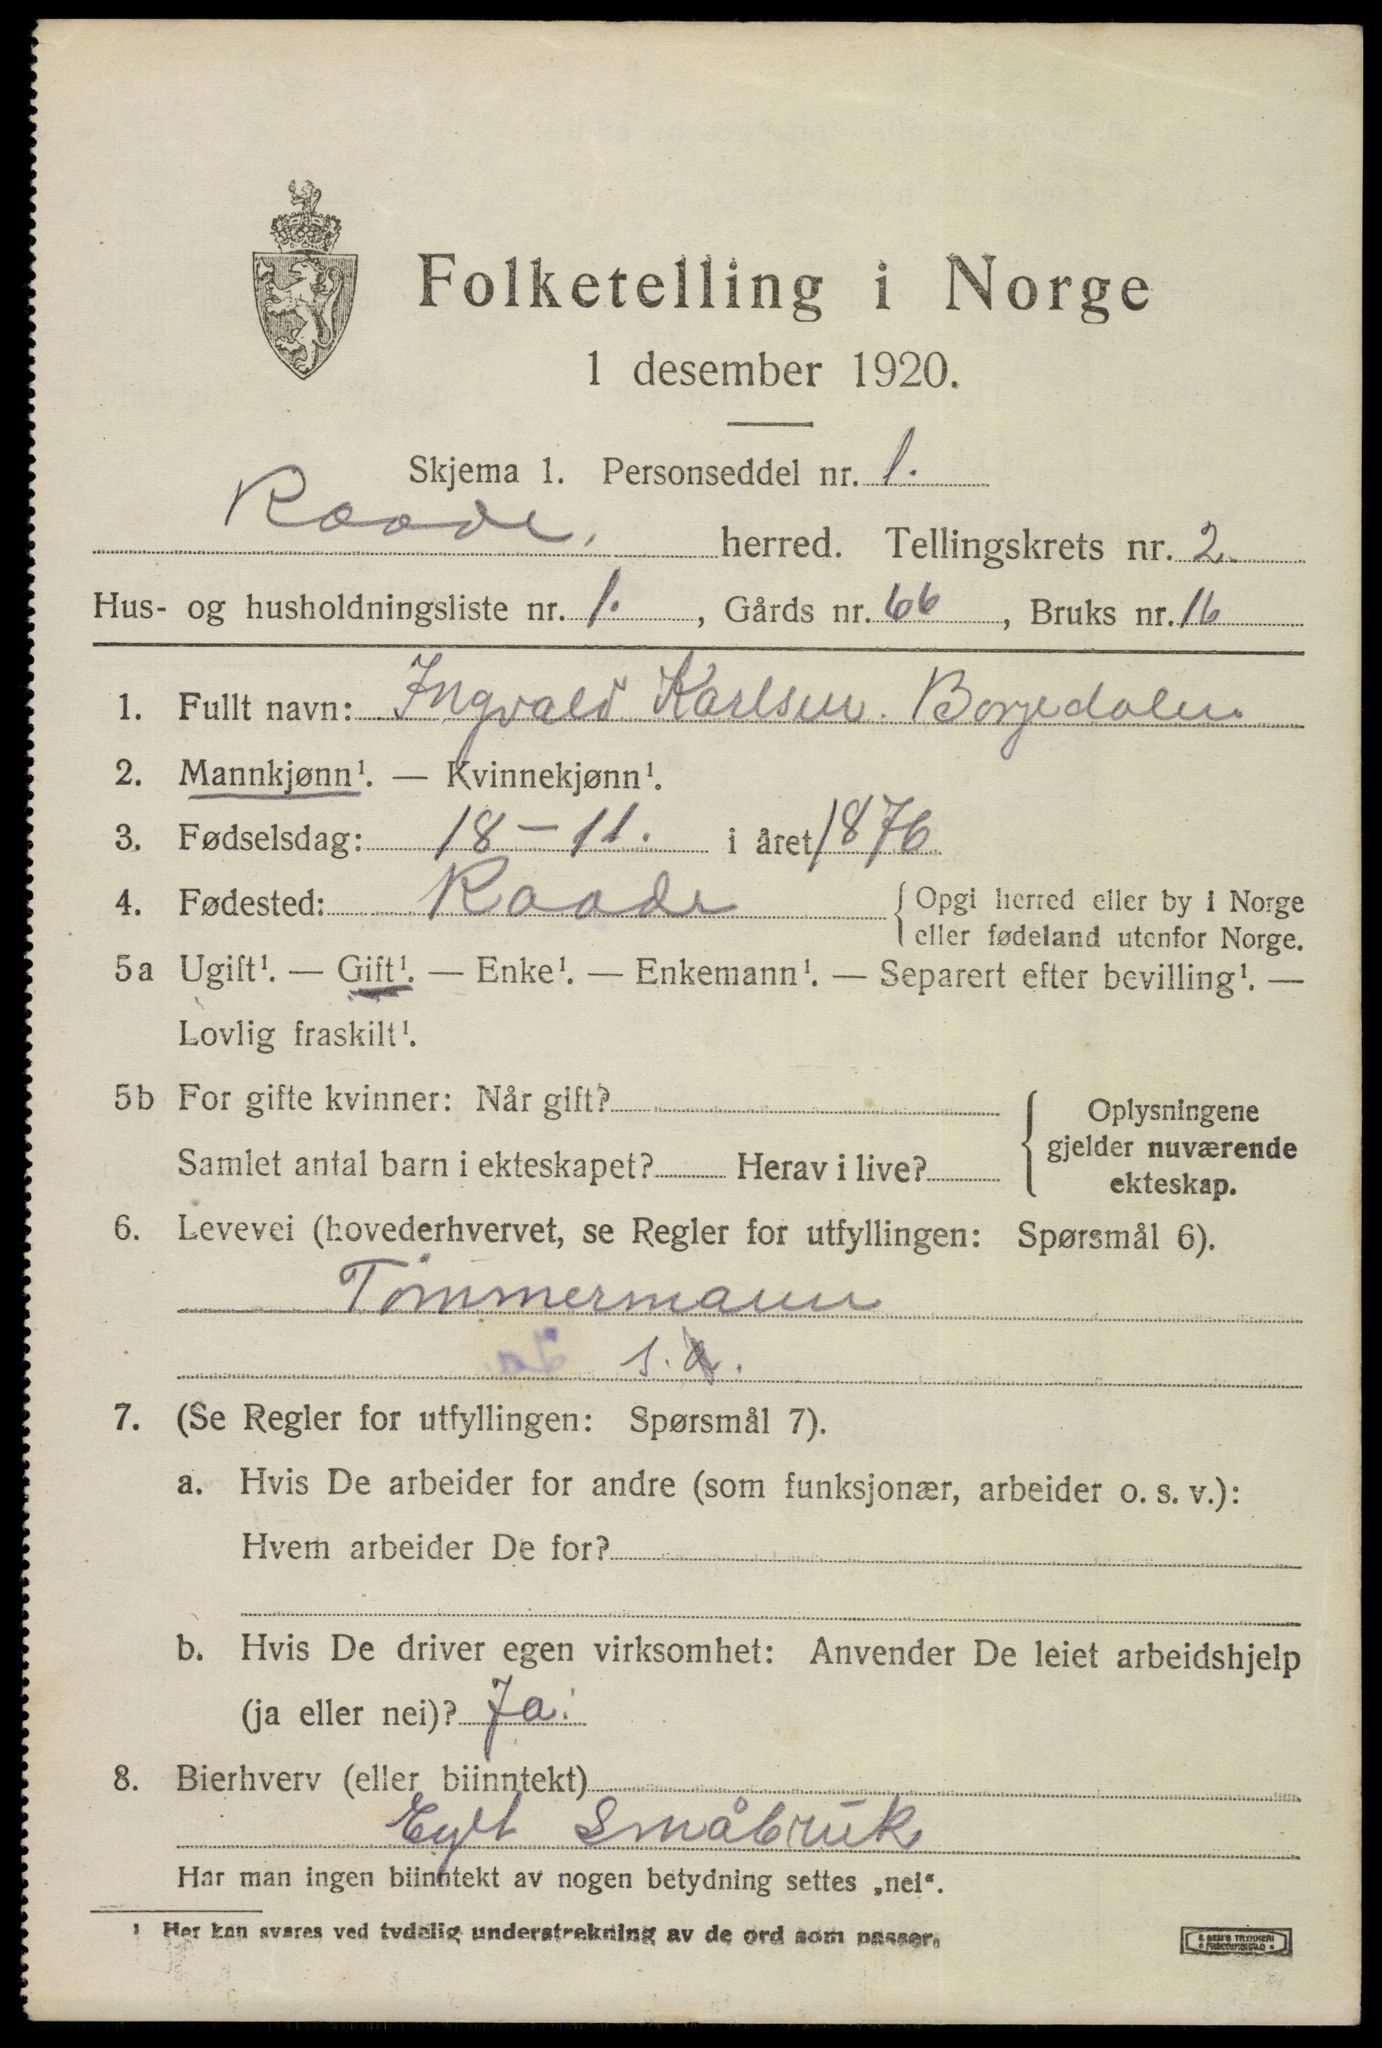 Folketelling i Norge
1 desember 1920.
Skjema 1. Personseddel nr. 1.
Raade. herred. Tellingskrets nr. 2.
Hus- og husholdningsliste nr. 1. , Gårds nr. 66 , Bruks nr. 16
1. Fullt navn: Ingvald Karlsen. Borgedalen
2. Mannkjønn¹. — Kvinnekjønn¹.
3. Fødselsdag: 18 – 11. i året 1876
4. Fødested: Raade { Opgi herred eller by i Norge
eller fødeland utenfor Norge.
5a Ugift¹. — Gift¹. — Enke¹. — Enkemann¹. — Separert efter bevilling¹. —
Lovlig fraskilt¹.
5b For gifte kvinner: Når gift?
Samlet antal barn i ekteskapet? Herav i live?
{ Oplysningene
gjelder nuværende
ekteskap.
6. Levevei (hovederhvervet, se Regler for utfyllingen: Spørsmål 6).
Tømmermann
s.
7. (Se Regler for utfyllingen: Spørsmål 7).
a. Hvis De arbeider for andre (som funksjonær, arbeider o. s. v.):
Hvem arbeider De for?
b. Hvis De driver egen virksomhet: Anvender De leiet arbeidshjelp
(ja eller nei)? Ja.
8. Bierhverv (eller biinntekt)
Eget Småbruk
Har man ingen biinntekt av nogen betydning settes „nei“.
¹ Her kan svares ved tydelig understrekning av de ord som passer.
E SEM'S TRYKKERI
FREDRIKSHALD